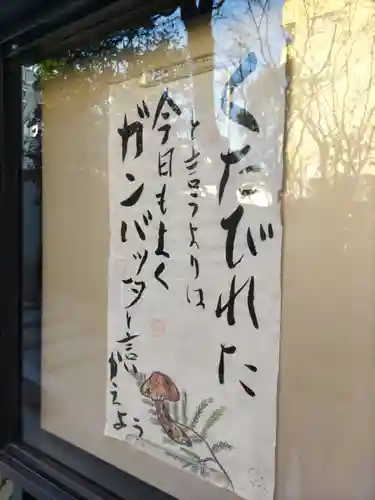 くたびれた
と言うよりは
今日もよく
ガンバッタと言い
かえよう